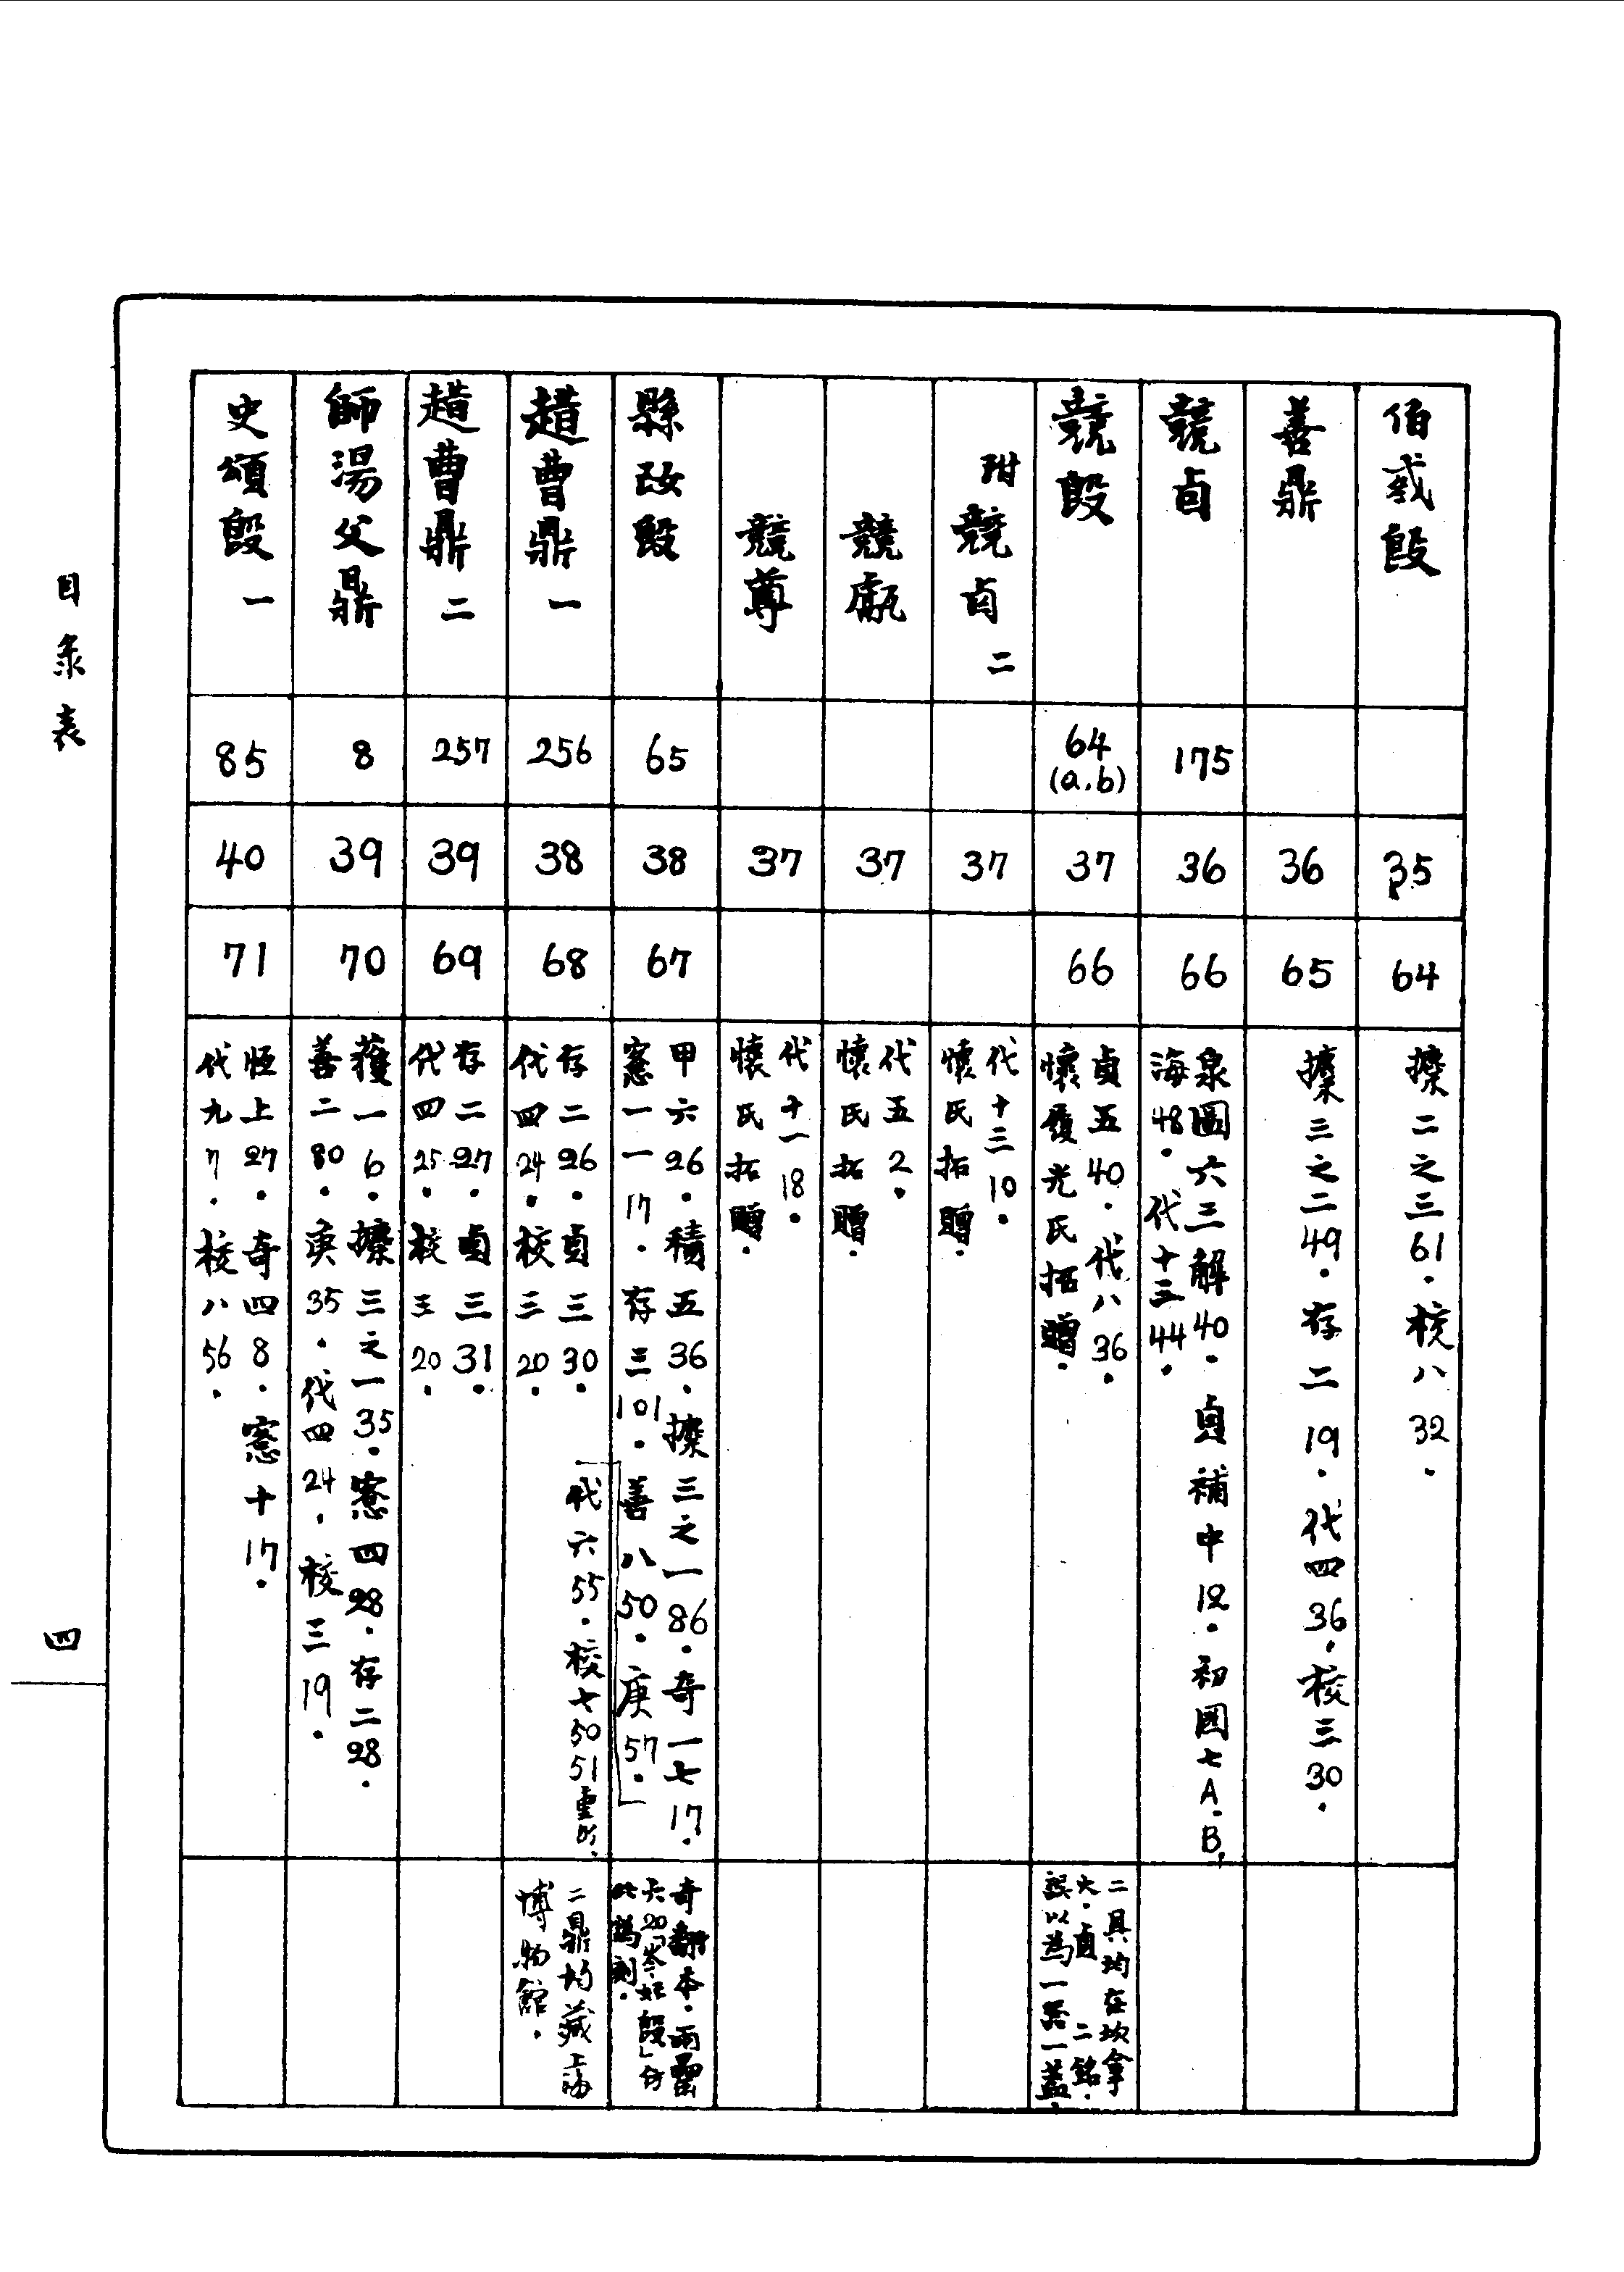 伯㦰𣪘
35
64
攈二之三61.校八32.
善鼎
36
65
攈三之二49.存二19.代四36.校三30.
競卣
175
36
66
泉圖六三解40.貞補中12.初圖七A.B.
海48.代十三44.
競𣪘
64
(a.b)
37
66
貞五40.代八36.
懷履光氏拓贈.
二具均在坎拿
大.貞 二銘.
誤以為一器一蓋.
坿 競卣 二
37
代十三10.
懷氏拓贈.
競甗
37
代五2.
懷氏拓贈.
競尊
37
代十一18.
懷氏拓贈.
縣改𣪘
65
38
67
甲六26.積五36.攈三之一86.奇一七17.
愙一一17.存三101.善八50.庚57.
代六55.校七50 51重出.
奇翻本.兩罍
六20
此偽刻.
趞曹鼎 一
256
38
68
存二26.貞三30.
代四24.校三20.
二鼎均藏上海
博物館.
趞曹鼎 二
257
39
69
存二27.貞三31.
代四25.校三20.
師湯父鼎
8
39
70
䕶一6.攈三之一35.愙四28.存二28.
善二80.庚35.代四24.校三19.
史頌𣪘 一
85
40
71
恆上27.奇四8.愙十17.
代九7.校八56.
目录表
四